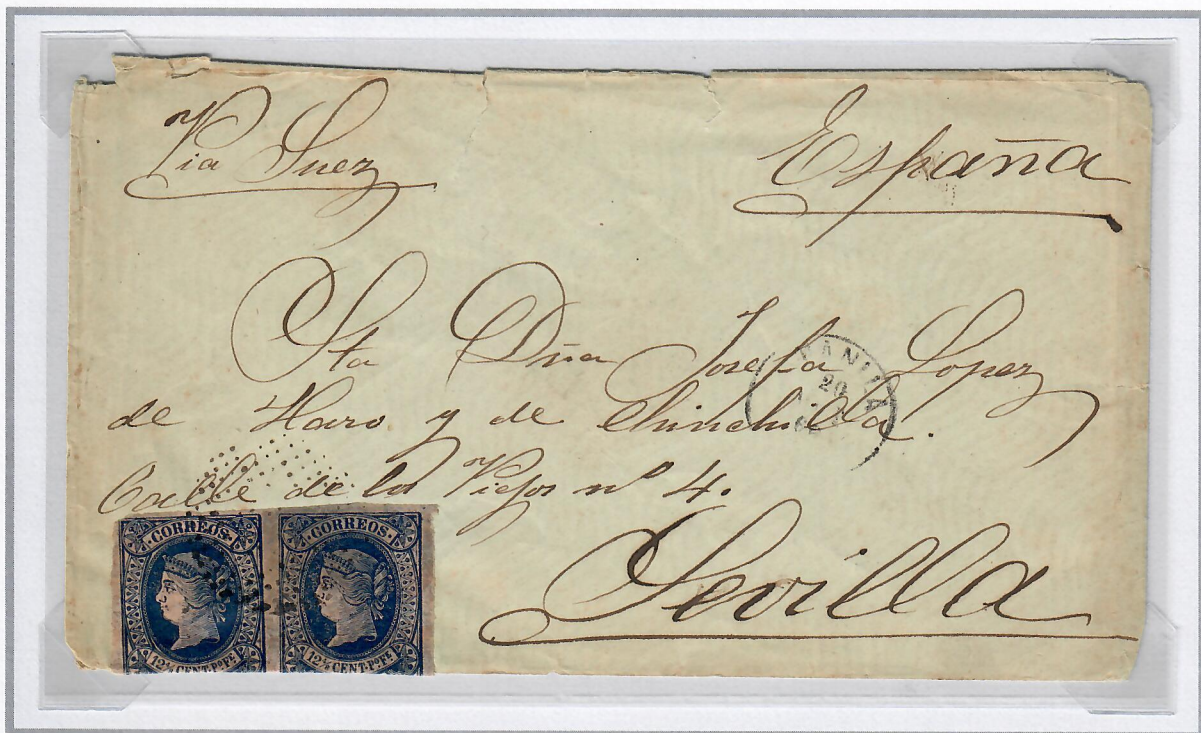 Via Suez
España
Sta Dña Josefa Lopez
de Haro y de Chinchilla.
Calle de los Viejos nº 4.
Sevilla
MANILA
20
CORREOS
12 4/8 CENT. Po. Fe.
CORREOS
12 4/8 CENT. Po. Fe.